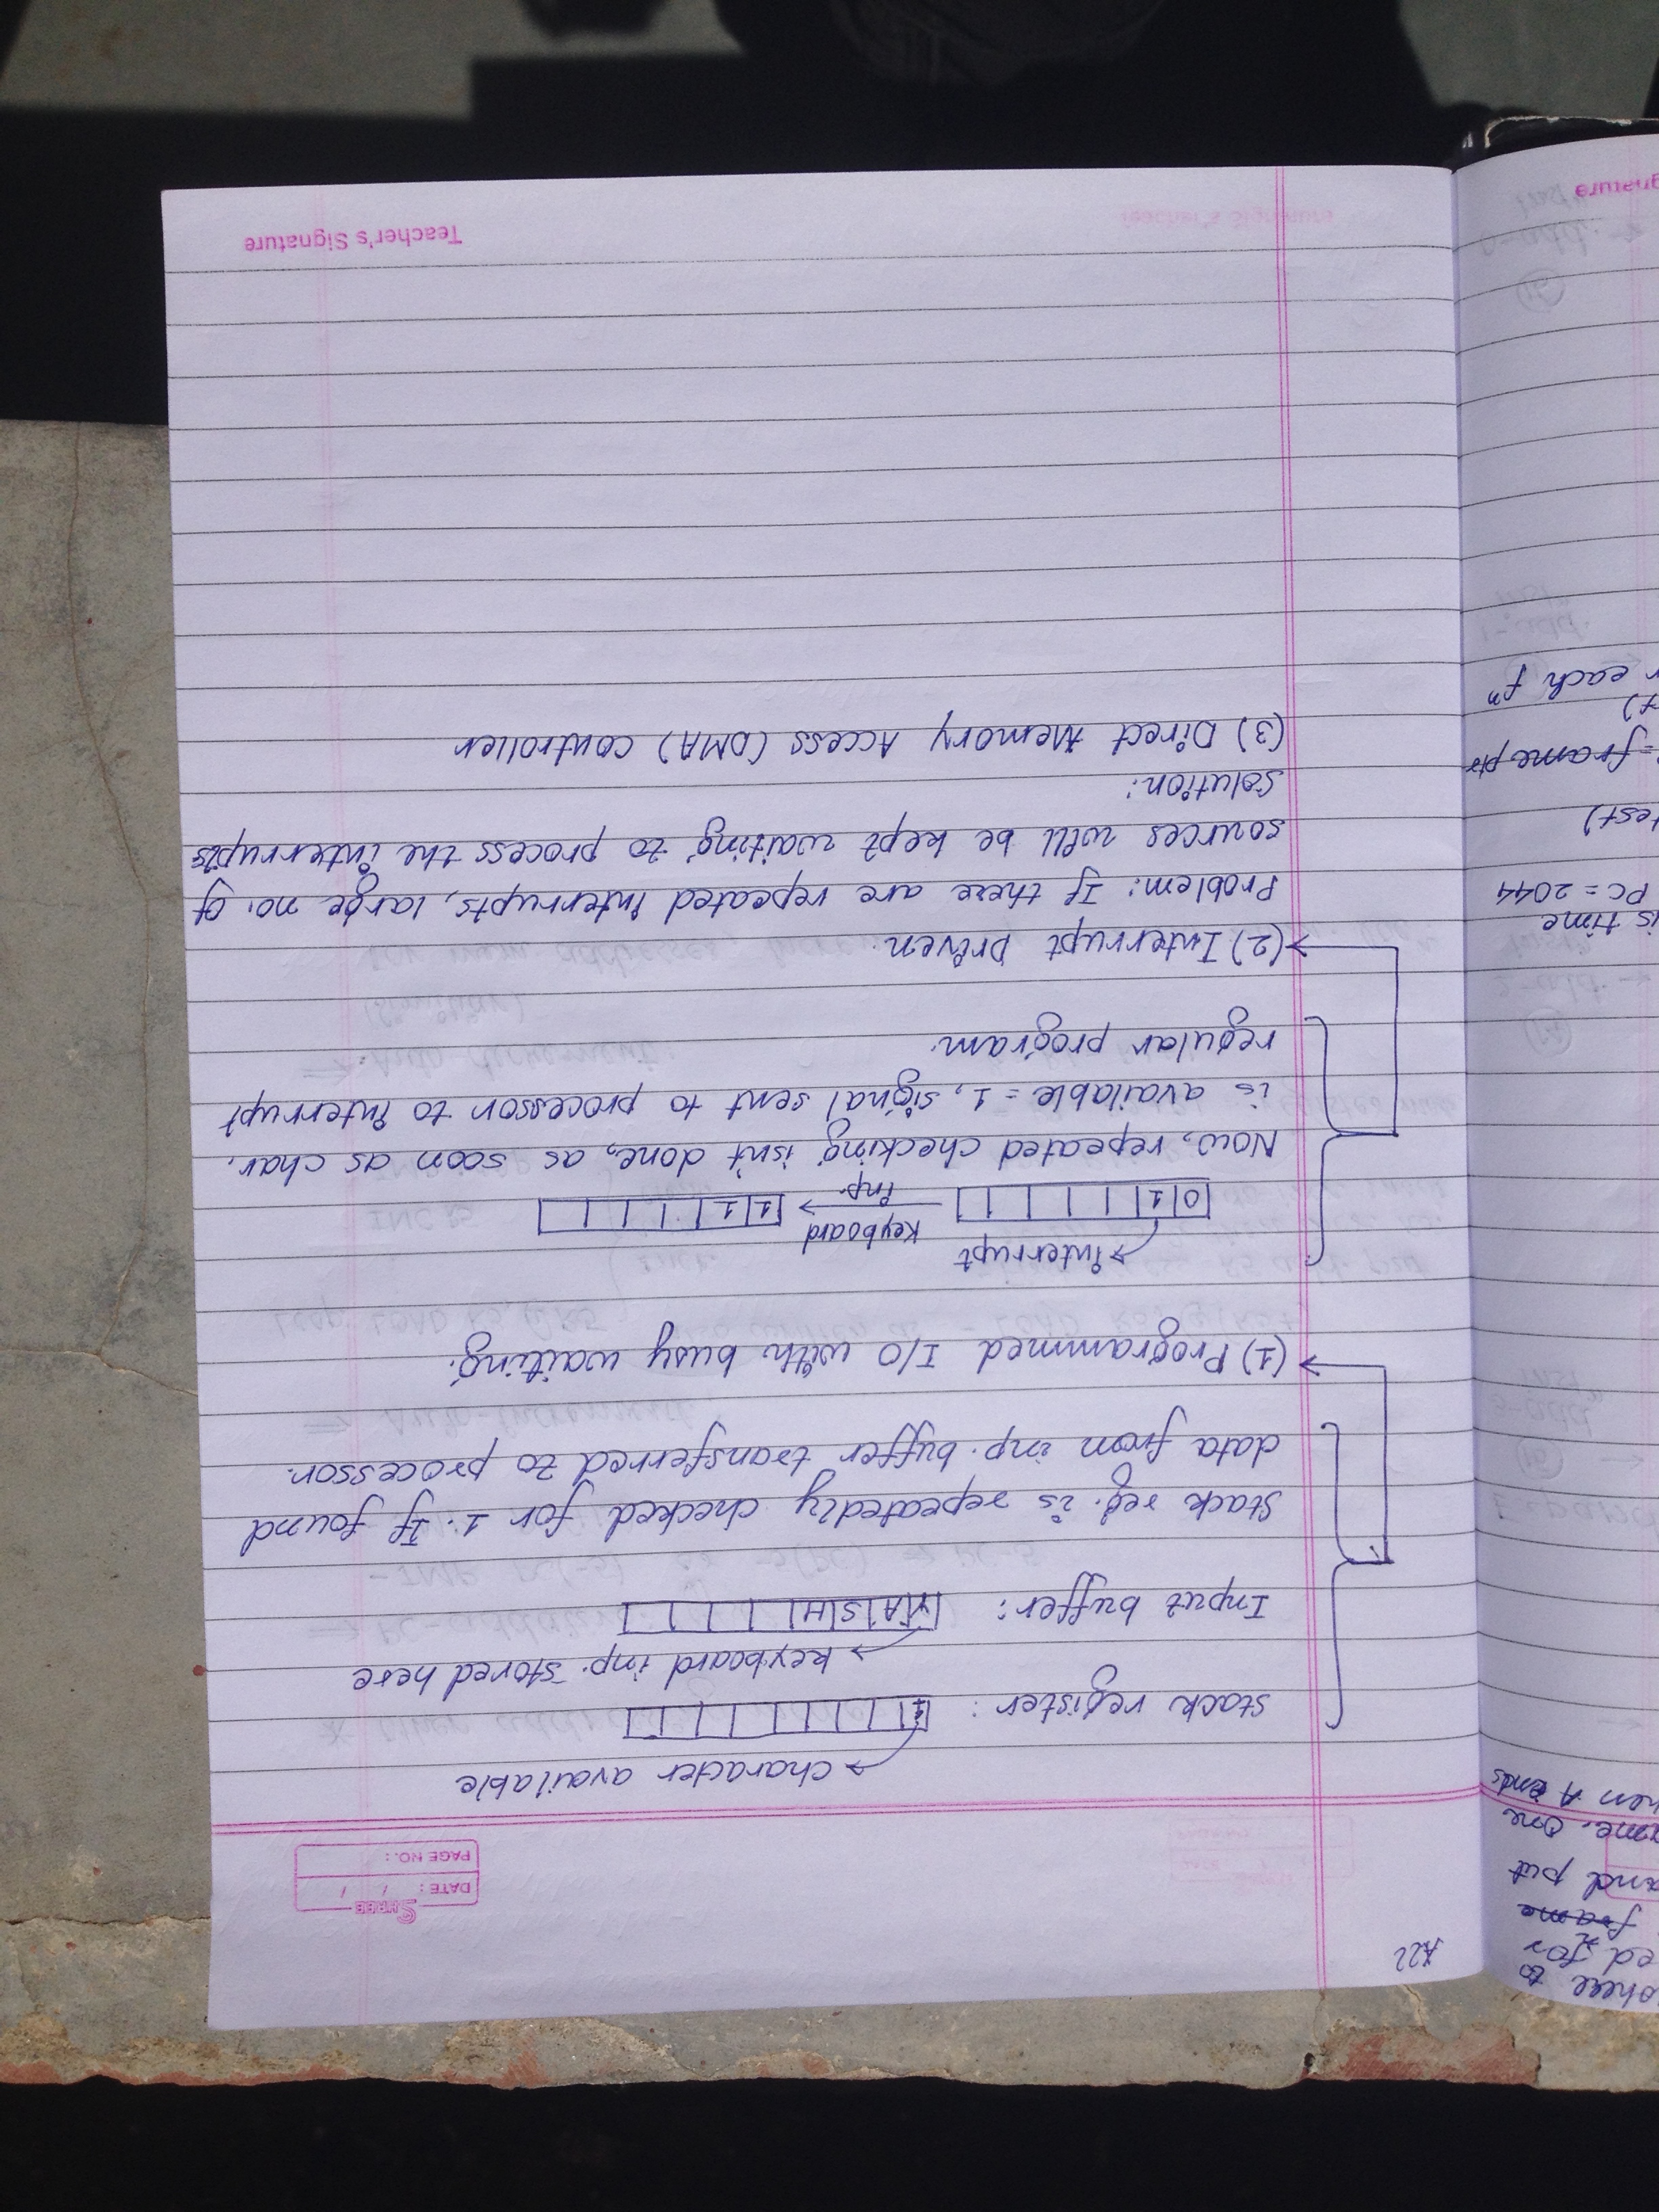 where to
ed for
frame
and put
ame. one
hen A ends
is time
PC = 2044
test)
frame ptr
r each fⁿ
gnature
A22
SHREE
DATE : / /
PAGE NO. :
character available
stack register : 1
keyboard inp. stored here
Input buffer: Y A S H
Stack reg. is repeatedly checked for 1. If found
data from inp. buffer transferred to processor.
(1) Programmed I/O with busy waiting.
interrupt
0 1 Keyboard inp. 1 1
Now, repeated checking isn't done, as soon as char.
is available = 1, signal sent to processor to interrupt
regular program.
(2) Interrupt Driven.
Problem: If there are repeated interrupts, large no. of
sources will be kept waiting to process the interrupts
Solution:
(3) Direct Memory Access (DMA) controller
Teacher's Signature